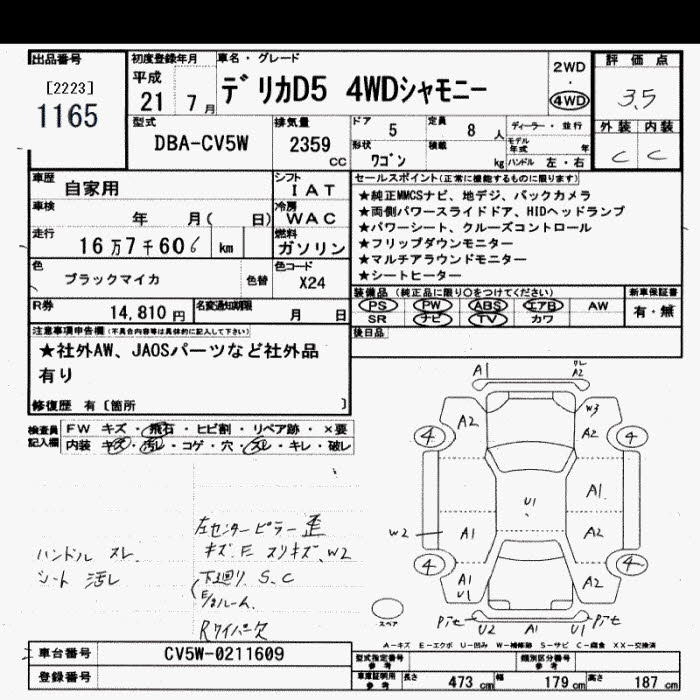 出品番号
[2223]
1165
初度登録年月
平成
21 7月
車名・グレード
デリカD5 4WDシャモニー
2WD
・
4WD
評価点
3.5
外装 内装
C C
型式
DBA-CV5W
排気量
2359
CC
ドア 5
定員 8 人
形状 ワゴン
積載 kg
ディーラー・並行
モデル年式 年
ハンドル 左・右
車歴 自家用
シフト
IAT
車検 年 月( 日)
冷房
WAC
走行 16万7千606 km
燃料
ガソリン
色 ブラックマイカ 色替
色コード
X24
R券 14,810円
名変通知期限 月 日
セールスポイント(正常に機能するものに限ります)
★純正MMCSナビ、地デジ、バックカメラ
★両側パワースライドドア、HIDヘッドランプ
★パワーシート、クルーズコントロール
★フリップダウンモニター
★マルチアラウンドモニター
★シートヒーター
装備品(純正品に限り○をつけてください)
PS PW ABS エアB AW
SR ナビ TV カワ
新車保証書
有・無
後日品
注意事項申告欄(不具合内容等は具体的に記入して下さい)
★社外AW、JAOSパーツなど社外品
有り
修復歴 有〔箇所 〕
検査員
記入欄
FW キズ・飛石・ヒビ割・リペア跡・×要
内装 キズ・汚レ・コゲ・穴・スレ・キレ・破レ
ハンドル スレ
シート 汚レ
左センターピラー 歪
キズ.E スリキズ.W2
下廻り S.C
E/gルーム.
Rワイパー欠
A1
A2
A2
W3
A2
4
4
A1
U1
W2
A1
A2
4
4
A1
U1
A2
スペア
U2 A1 U1
A-キズ E-エクボ U-凹み W-補修跡 S-サビ C-腐食 XX-交換済
車台番号 CV5W-0211609
登録番号
型式指定番号
参考
類別区分番号
参考
車庫証明用
参考
長さ 473cm 幅 179cm 高さ 187cm